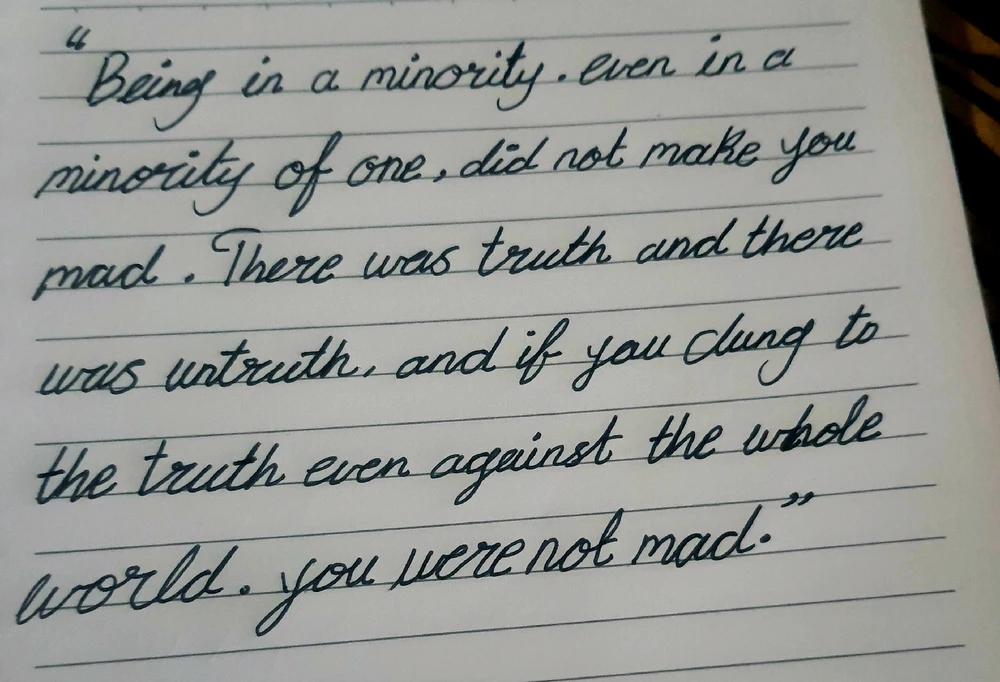 “Being in a minority. even in a
minority of one, did not make you
mad. There was truth and there
was untruth, and if you clung to
the truth even against the whole
world. you were not mad.”